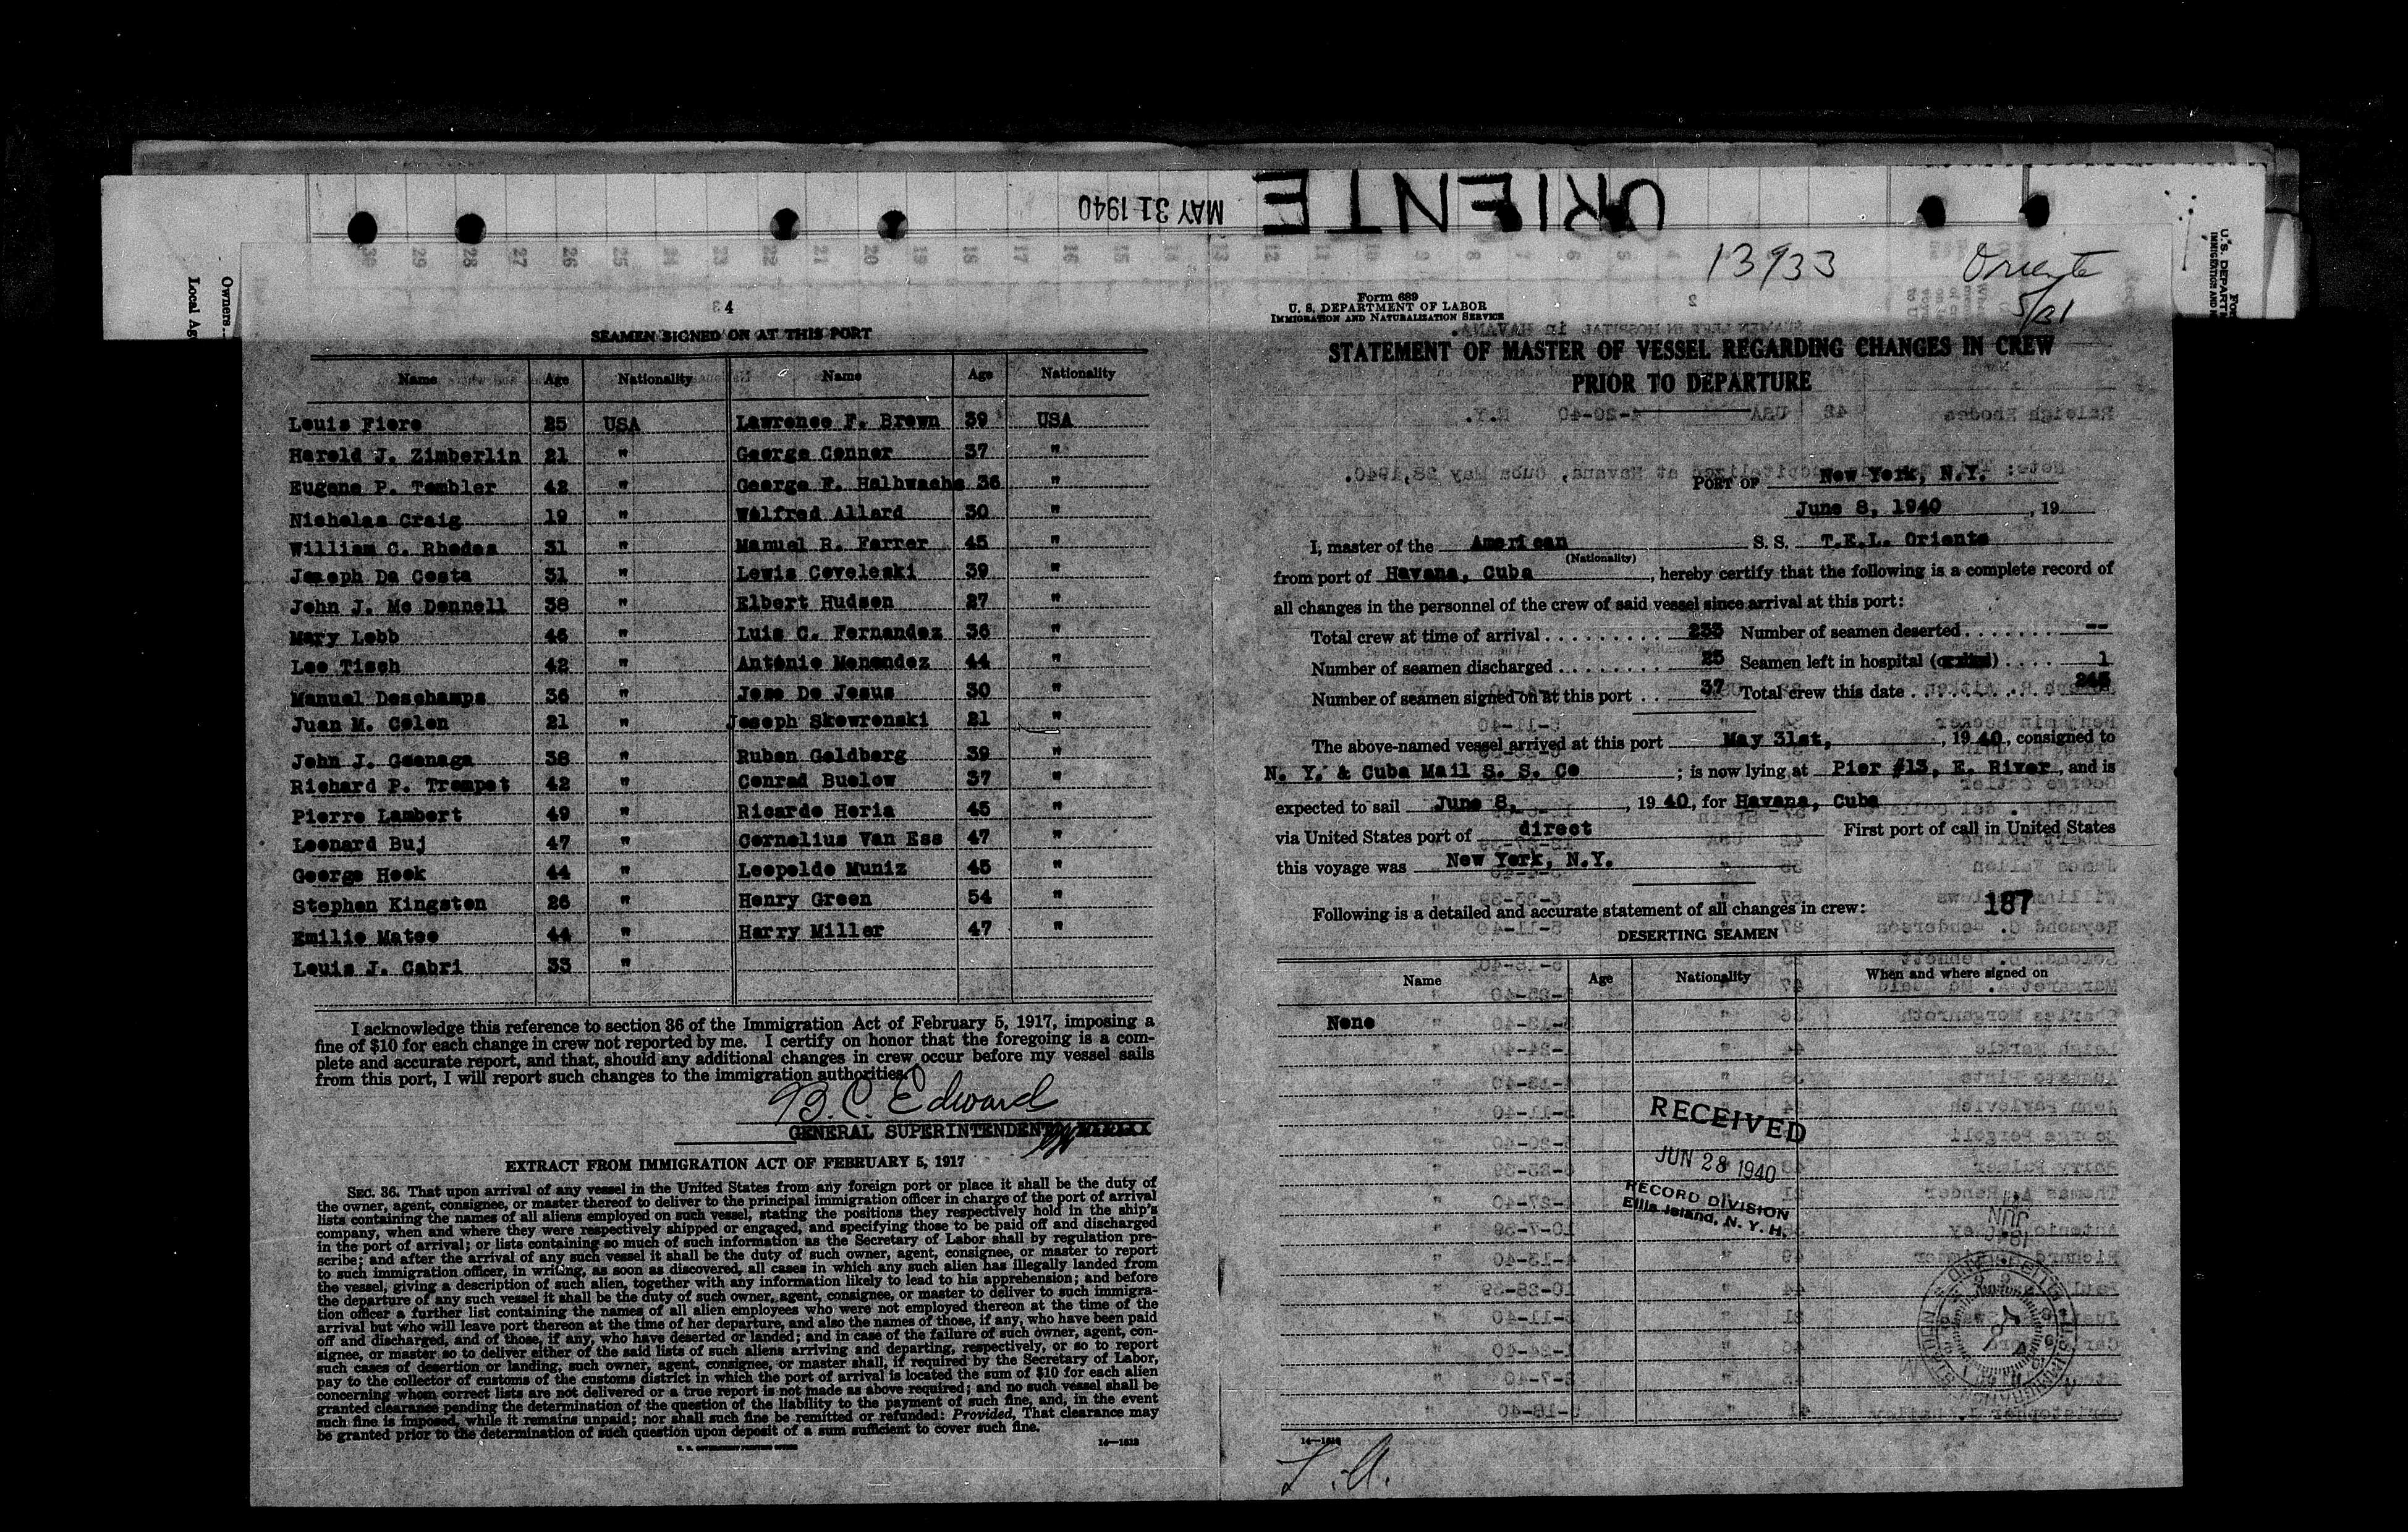 ORIENTE
MAY 31 1940
13933
Oriente
5/31
Owners
Local Ag
4
SEAMEN SIGNED ON AT THIS PORT
Name Age Nationality Name Age Nationality
Louis Fiore 25 USA Lawrence F. Brown 39 USA
Harold J. Zimberlin 21 " George Conner 37 "
Eugene P. Tembler 42 " George F. Halbwachs 36 "
Nicholas Craig 19 " Wilfred Allard 30 "
William C. Rhodes 31 " Manuel R. Farrer 45 "
Joseph Da Costa 31 " Lewis Coveleski 39 "
John J. Mc Donnell 38 " Elbert Hudson 27 "
Mary Lobb 46 " Luis C. Fernandez 36 "
Leo Tisch 42 " Antonio Menendez 44 "
Manuel Deschamps 36 " Jose De Jesus 30 "
Juan M. Colon 21 " Joseph Skowronski 21 "
John J. Goenaga 38 " Ruben Goldberg 39 "
Richard P. Trompet 42 " Conrad Buelow 37 "
Pierre Lambert 49 " Ricardo Heria 45 "
Leonard Buj 47 " Cornelius Van Ess 47 "
George Hook 44 " Leopoldo Muniz 45 "
Stephen Kingston 26 " Henry Green 54 "
Emilio Mateo 44 " Harry Miller 47 "
Louis J. Cabri 33 "
I acknowledge this reference to section 36 of the Immigration Act of February 5, 1917, imposing a
fine of $10 for each change in crew not reported by me. I certify on honor that the foregoing is a com-
plete and accurate report, and that, should any additional changes in crew occur before my vessel sails
from this port, I will report such changes to the immigration authorities.
B. C. Edward
GENERAL SUPERINTENDENT
EXTRACT FROM IMMIGRATION ACT OF FEBRUARY 5, 1917
SEC. 36. That upon arrival of any vessel in the United States from any foreign port or place it shall be the duty of
the owner, agent, consignee, or master thereof to deliver to the principal immigration officer in charge of the port of arrival
lists containing the names of all aliens employed on such vessel, stating the positions they respectively hold in the ship's
company, when and where they were respectively shipped or engaged, and specifying those to be paid off and discharged
in the port of arrival; or lists containing so much of such information as the Secretary of Labor shall by regulation pre-
scribe; and after the arrival of any such vessel it shall be the duty of such owner, agent, consignee, or master to report
to such immigration officer, in writing, as soon as discovered, all cases in which any such alien has illegally landed from
the vessel, giving a description of such alien, together with any information likely to lead to his apprehension; and before
the departure of any such vessel it shall be the duty of such owner, agent, consignee, or master to deliver to such immigra-
tion officer a further list containing the names of all alien employees who were not employed thereon at the time of the
arrival but who will leave port thereon at the time of her departure, and also the names of those, if any, who have been paid
off and discharged, and of those, if any, who have deserted or landed; and in case of the failure of such owner, agent, con-
signee, or master so to deliver either of the said lists of such aliens arriving and departing, respectively, or so to report
such cases of desertion or landing, such owner, agent, consignee, or master shall, if required by the Secretary of Labor,
pay to the collector of customs of the customs district in which the port of arrival is located the sum of $10 for each alien
concerning whom correct lists are not delivered or a true report is not made as above required; and no such vessel shall be
granted clearance pending the determination of the question of the liability to the payment of such fine, and, in the event
such fine is imposed, while it remains unpaid; nor shall such fine be remitted or refunded: Provided, That clearance may
be granted prior to the determination of such question upon deposit of a sum sufficient to cover such fine.
U. S. GOVERNMENT PRINTING OFFICE 14—1613
Form 689
U. S. DEPARTMENT OF LABOR
IMMIGRATION AND NATURALIZATION SERVICE
STATEMENT OF MASTER OF VESSEL REGARDING CHANGES IN CREW
PRIOR TO DEPARTURE
PORT OF New York, N.Y.
June 8, 1940, 19
I, master of the American S. S. T.E.L. Oriente
(Nationality)
from port of Havana, Cuba, hereby certify that the following is a complete record of
all changes in the personnel of the crew of said vessel since arrival at this port:
Total crew at time of arrival 233 Number of seamen deserted --
Number of seamen discharged 25 Seamen left in hospital 1
Number of seamen signed on at this port 37 Total crew this date 245
The above-named vessel arrived at this port May 31st, 1940, consigned to
N. Y. & Cuba Mail S. S. Co; is now lying at Pier #13, E. River, and is
expected to sail June 8, 1940, for Havana, Cuba
via United States port of direct First port of call in United States
this voyage was New York, N.Y.
Following is a detailed and accurate statement of all changes in crew:
187
DESERTING SEAMEN
Name Age Nationality When and where signed on
None
RECEIVED
JUN 28 1940
RECORD DIVISION
Ellis Island, N. Y. H.
14—1613